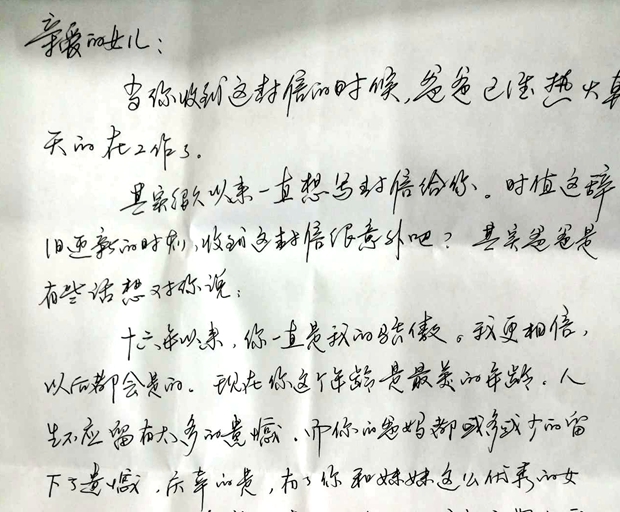 亲爱的女儿：
当你收到这封信的时候，爸爸已经热火朝
天的在工作了。
其实很久以来一直想写封信给你。时值这辞
旧迎新的时刻，收到这封信很意外吧？其实爸爸是
有些话想对你说：
十六年以来，你一直是我的骄傲。我更相信，
以后都会是的。现在你这个年龄是最美的年龄。人
生不应留有太多的遗憾，而你的爸妈都或多或少的留
下了遗憾，庆幸的是，有了你和妹妹这么优秀的女